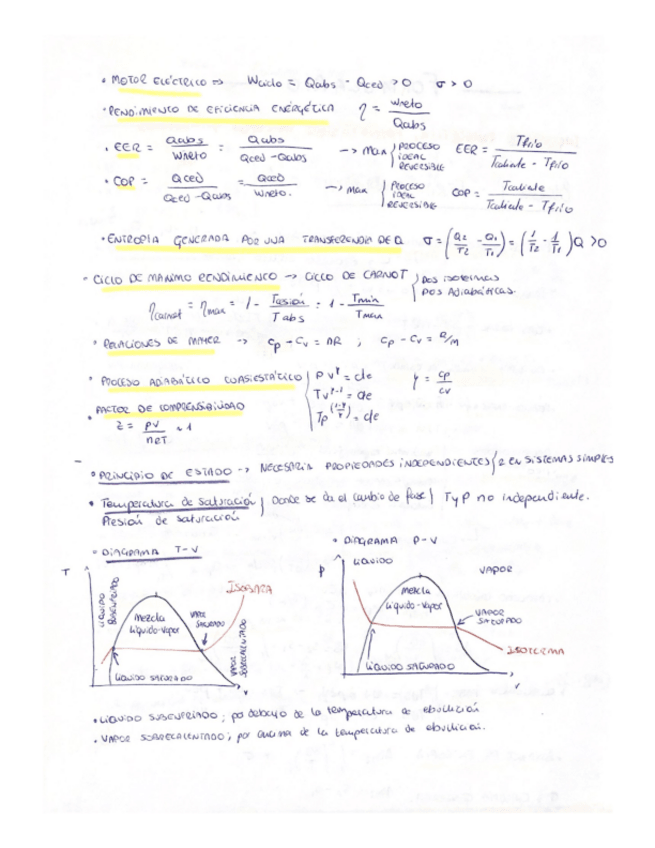 • MOTOR ELÉCTRICO ⇒ Wciclo = Qabs - Qced > 0   σ > 0
• RENDIMIENTO DE EFICIENCIA ENERGÉTICA η = Wneto / Qabs
• EER = Qabs / Wneto = Qabs / (Qced - Qabs) → MAX { PROCESO IDEAL REVERSIBLE   EER = Tfrío / (Tcaliente - Tfrío)
• COP = Qced / (Qced - Qabs) = Qced / Wneto. → MAX { PROCESO IDEAL REVERSIBLE   COP = Tcaliente / (Tcaliente - Tfrío)
• ENTROPÍA GENERADA POR UNA TRANSFERENCIA DE Q   σ = (Q2/T2 - Q1/T1) = (1/T2 - 1/T1) Q > 0
• CICLO DE MÁXIMO RENDIMIENTO → CICLO DE CARNOT { DOS ISOTERMAS
DOS Adiabáticas.
ηcarnot = ηmax = 1 - Tcesión / Tabs = 1 - Tmin / Tmax
• RELACIONES DE MAYER → Cp - Cv = nR ; Cp - Cv = R/M
• PROCESO ADIABÁTICO CUASIESTÁTICO { PV^γ = cte   γ = cp / cv
TV^γ-1 = cte
Tp^((1-γ)/γ) = cte
• FACTOR DE COMPRENSIBILIDAD
z = PV / nRT ≈ 1
• PRINCIPIO DE ESTADO → NECESARIA PROPIEDADES INDEPENDIENTES { 2 EN SISTEMAS SIMPLES
• Temperatura de saturación } Donde se da el cambio de fase } T y P no independiente.
Presión de saturación
• DIAGRAMA T-V
• DIAGRAMA P-V
T
LÍQUIDO
SUBENFRIADO
Mezcla
Líquido-Vapor
VAPOR
SATURADO
ISOBARA
VAPOR
SOBRECALENTADO
LÍQUIDO SATURADO
V
P
LÍQUIDO
VAPOR
Mezcla
Líquido-Vapor
VAPOR
SATURADO
ISOTERMA
LÍQUIDO SATURADO
V
• LÍQUIDO SUBENFRIADO; por debajo de la temperatura de ebullición
• VAPOR SOBRECALENTADO; por encima de la temperatura de ebullición.